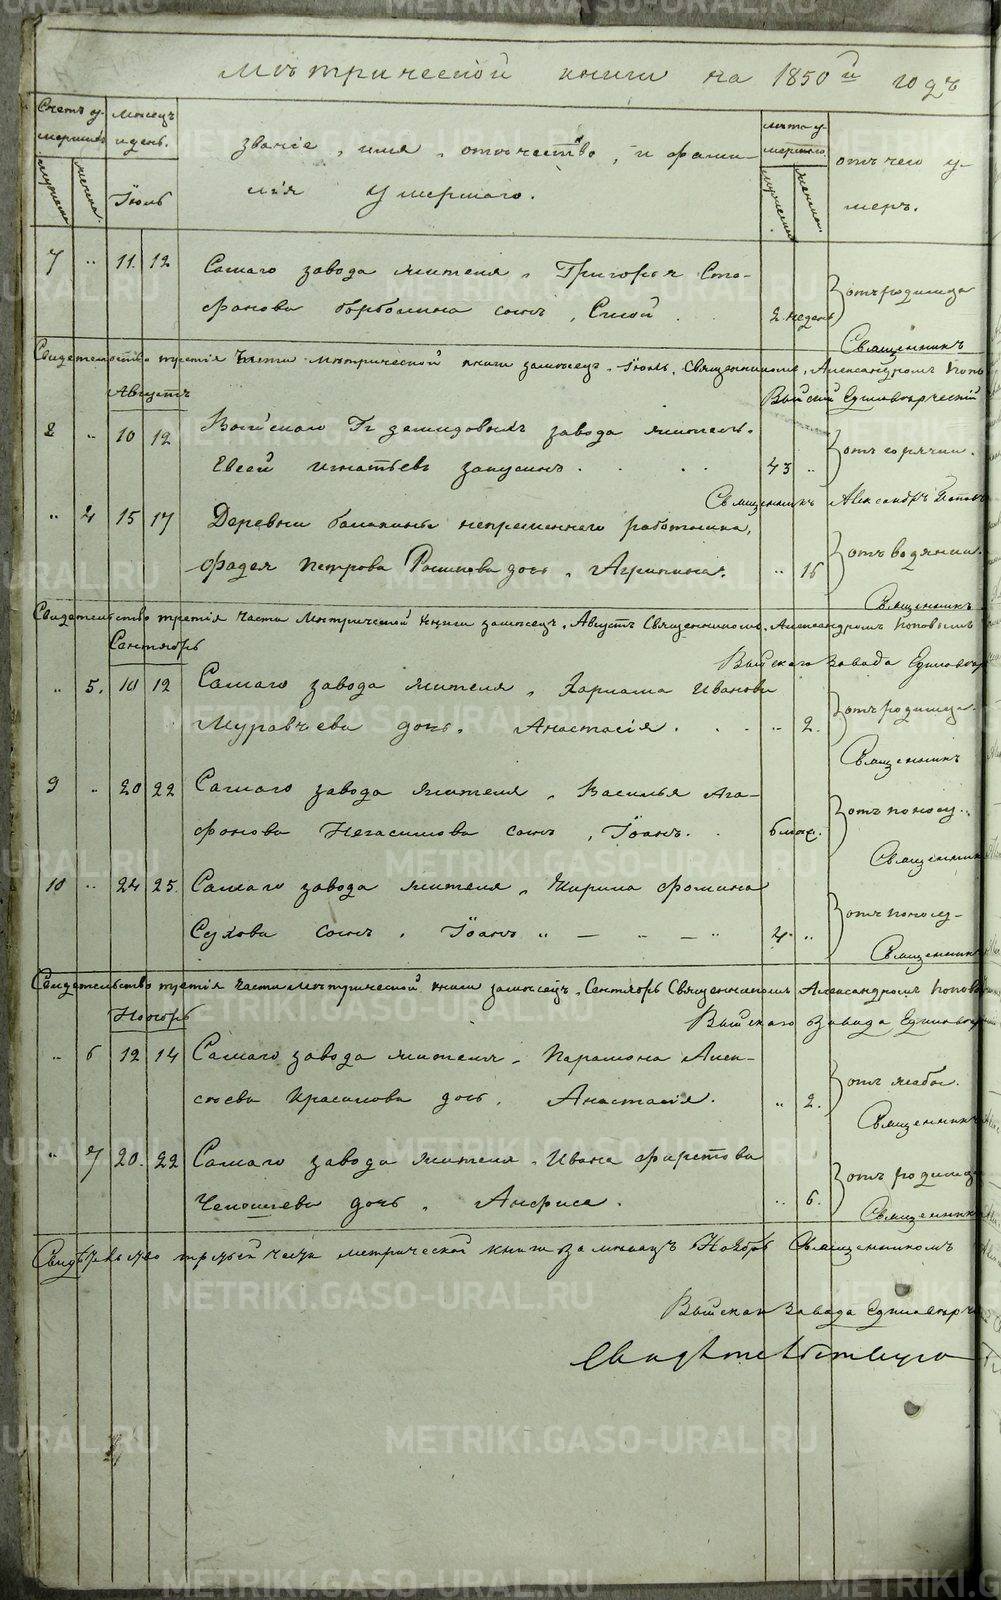 Метрической книги на 1850й годъ
Счетъ умершихъ
Месяцъ и день.
Званіе, имя, отчество, и фамилія умершаго.
Лѣта умершаго
отъ чего умеръ.
мужеска
женска.
Іюль
мужеска
женска.
7 " 11. 12 Самаго завода жителя, Григорья Сте-
фанова сынъ, 2 недели отъ родимца
Священникъ
Свидетельство третія части метрической книги замесецъ Іюль. Священникомъ, Александромъ Попов
Августъ
Выйский Единоверческій
8 " 10 12 Выйскаго Гг Демидовыхъ завода житель.
Евсей Игнатьевъ 43 " отъ горячки.
Священникъ Александръ Поповъ
" 4 15 17 Деревни непременнаго работника,
Фадея Петрова дочь, Агрипина. " 15 отъ водянки.
Священникъ
Свидетельство третія части Метрической Книги замесецъ, Августъ Священникомъ, Александромъ Поповымъ
Сентябрь
Выйскаго завода Единовер
" 5. 10 12 Самаго завода жителя, Харлама Иванова
Муравьева дочь. Анастасія. " 2. отъ родимца.
Священникъ
9 " 20 22 Самаго завода жителя, Василья Ага-
фонова Негасимова сынъ, Іоанъ. 6 мес. отъ поносу.
Священникъ
10 " 24 25. Самаго завода жителя, Кирила Фомина
Сухова сынъ, Іоанъ " — — — " 4. " отъ поносу
Священникъ
Свидетельство третія части Метрической книги замесецъ, Сентябрь Священникомъ Александромъ Попов
Ноябрь
Выйскаго Завода Единовер
" 6 12 14 Самаго завода жителя, Парамона Алек-
сеева Красикова дочь, Анастасія. " 2. отъ жабы.
Священникъ
" 7 20. 22 Самаго завода жителя, Ивана
дочь, Анфиса. " 6. отъ родимца
Священникъ
Свидѣтельство третьей части метрической книги за месяцъ Ноябрь Священникомъ
Выйскаго Завода Единоверч
Свидѣтельствую
METRIKI.GASO-URAL.RU